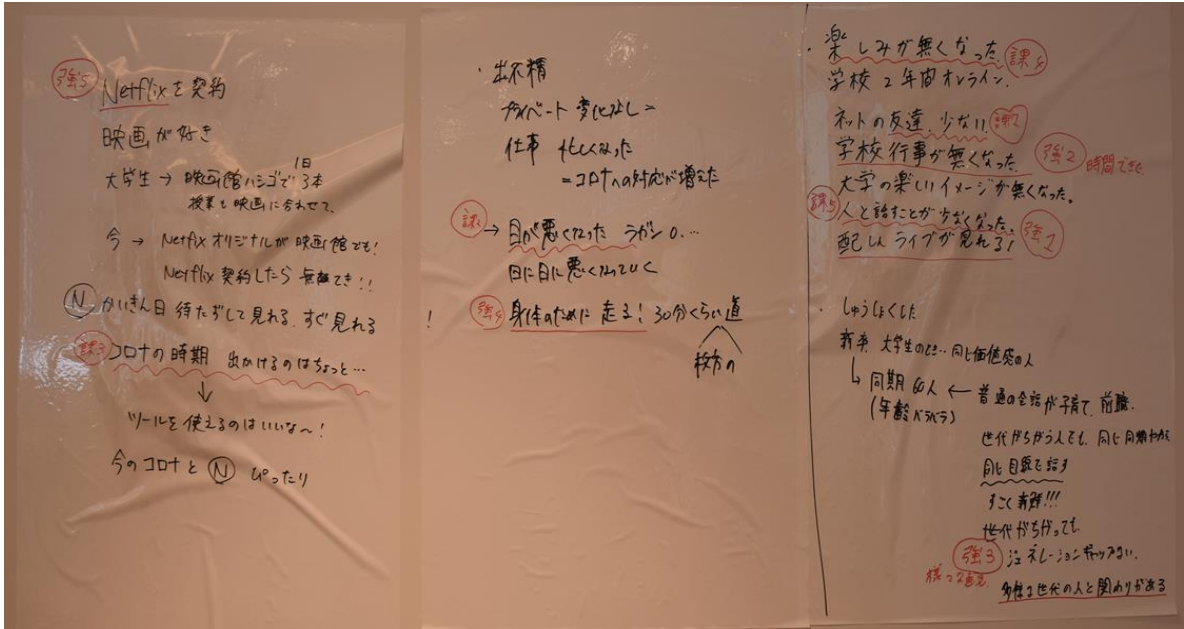 強5
Netflixを契約
映画が好き
大学生→映画館ハシゴで1日3本
授業も映画に合わせて。
今→Netflixオリジナルが映画館でも!
Netflix契約したら無敵でき!!
Ⓝかいきん日待たずして見れる、すぐ見れる!
課3 コロナの時期 出かけるのはちょっと…
↓
ツールを使えるのはいいな〜!
今のコロナとⓃぴったり
・出不精
プライベート変化なし=
仕事 忙しくなった
=コロナへの対応が増えた
→目が悪くなった
日に日に悪くなっていく
強4 身体のために走る!30分くらい道
枚方の
・楽しみが無くなった。課4
学校2年間オンライン。
ネットの友達、少ない。
学校行事が無くなった。強2 時間できた
大学の楽しいイメージが無くなった。
課5 人と話すことが少なくなった。
配しんライブが見れる!強1
・しゅうしょくした
新卒 大学生のとき‥同じ価値感の人
↳同期60人←普通の会話が子育て、前職、
(年齢バラバラ)
世代がちがう人でも、同じ同期
同じ目線で話す
すごく新鮮!!!
世代がちがっても
強3 ジェネレーションギャップない。
様々な意見
多様な世代の人と関わりがある